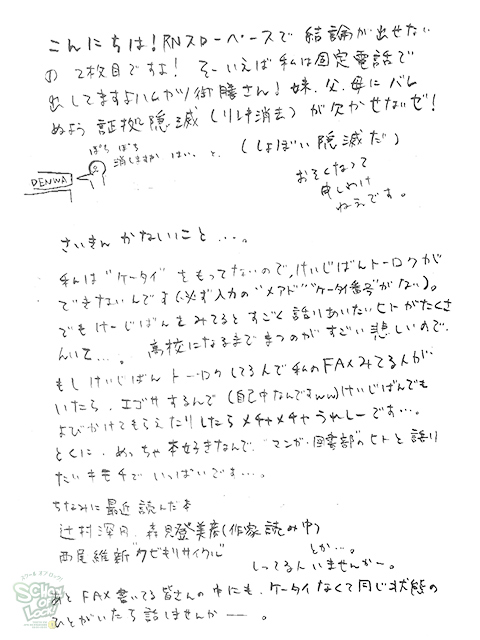 こんにちは!RNスローペースで 結論が出せない
の 2枚目ですよ! そーいえば 私は固定電話で
出してますよハムカツ街勝さん!妹、父、母に バレ
ぬよう 証拠隠滅 (リレキ消去) が欠かせないぜ!
(しょぼい 隠滅だ)
ぽち ぽち
消しますか はい、と、
DENWA
おそくなって
申しわけ
ねぇです。
さいきん かなしいこと…。
私は"ケータイ"をもってないので、けいじばんトーロクが
できないんです(必ず入力の"メアド""ケータイ番号"がない)。
でもけーじばんをみてるとすごく語りあいたいヒトがたくさ
んいて…。 高校になるまで まつのが すごい 悲しいので、
もし けいじばん トーロクしてる人で 私のFAXみてる人が
いたら、エゴサするんで(自己中なんですww)けいじばんでも
よびかけてもらえたりしたらメチャメチャうれしーです…。
とくに、めっちゃ本好きなんで、"マンガ・図書部"のヒトと語り
たいキモチで いっぱいです…。
ちなみに最近 読んだ本
辻村深月、森見登美彦(作家読み中)
西尾維新"クビキリサイクル" とか…。
しってる人いませんかー。
あと FAX 書いてる皆さんの中にも、ケータイなくて同じ状態の
ひとがいたら 話しませんかーー。
SCHOOL OF LOCK!